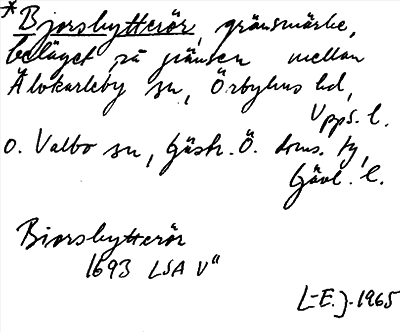 *Bjorsbytterör, gränsmärke,
beläget på gränsen mellan
Älvkarleby sn, Örbyhus hd,
Upps. l.
o. Valbo sn, Gästr. Ö. doms. tg,
Gävl. l.
Biorsbytterör
1693 LSA V"
L-E.J. 1965